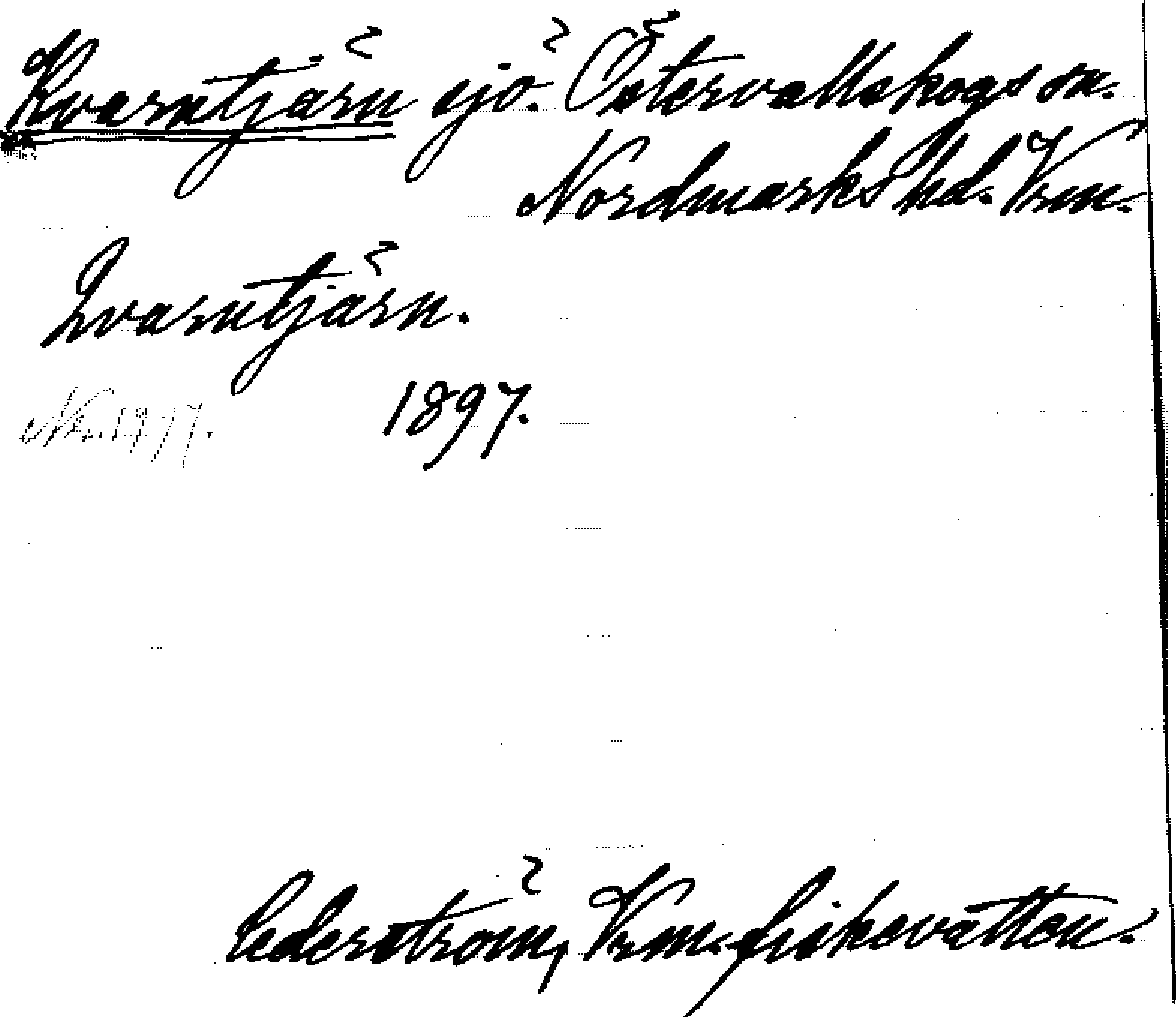 Kvarntjärn sjö. Östervallskogs sn.
Nordmarks hd. Vrm.
Qvarntjärn.
1897.
Cederström, Vrm. fiskevatten.